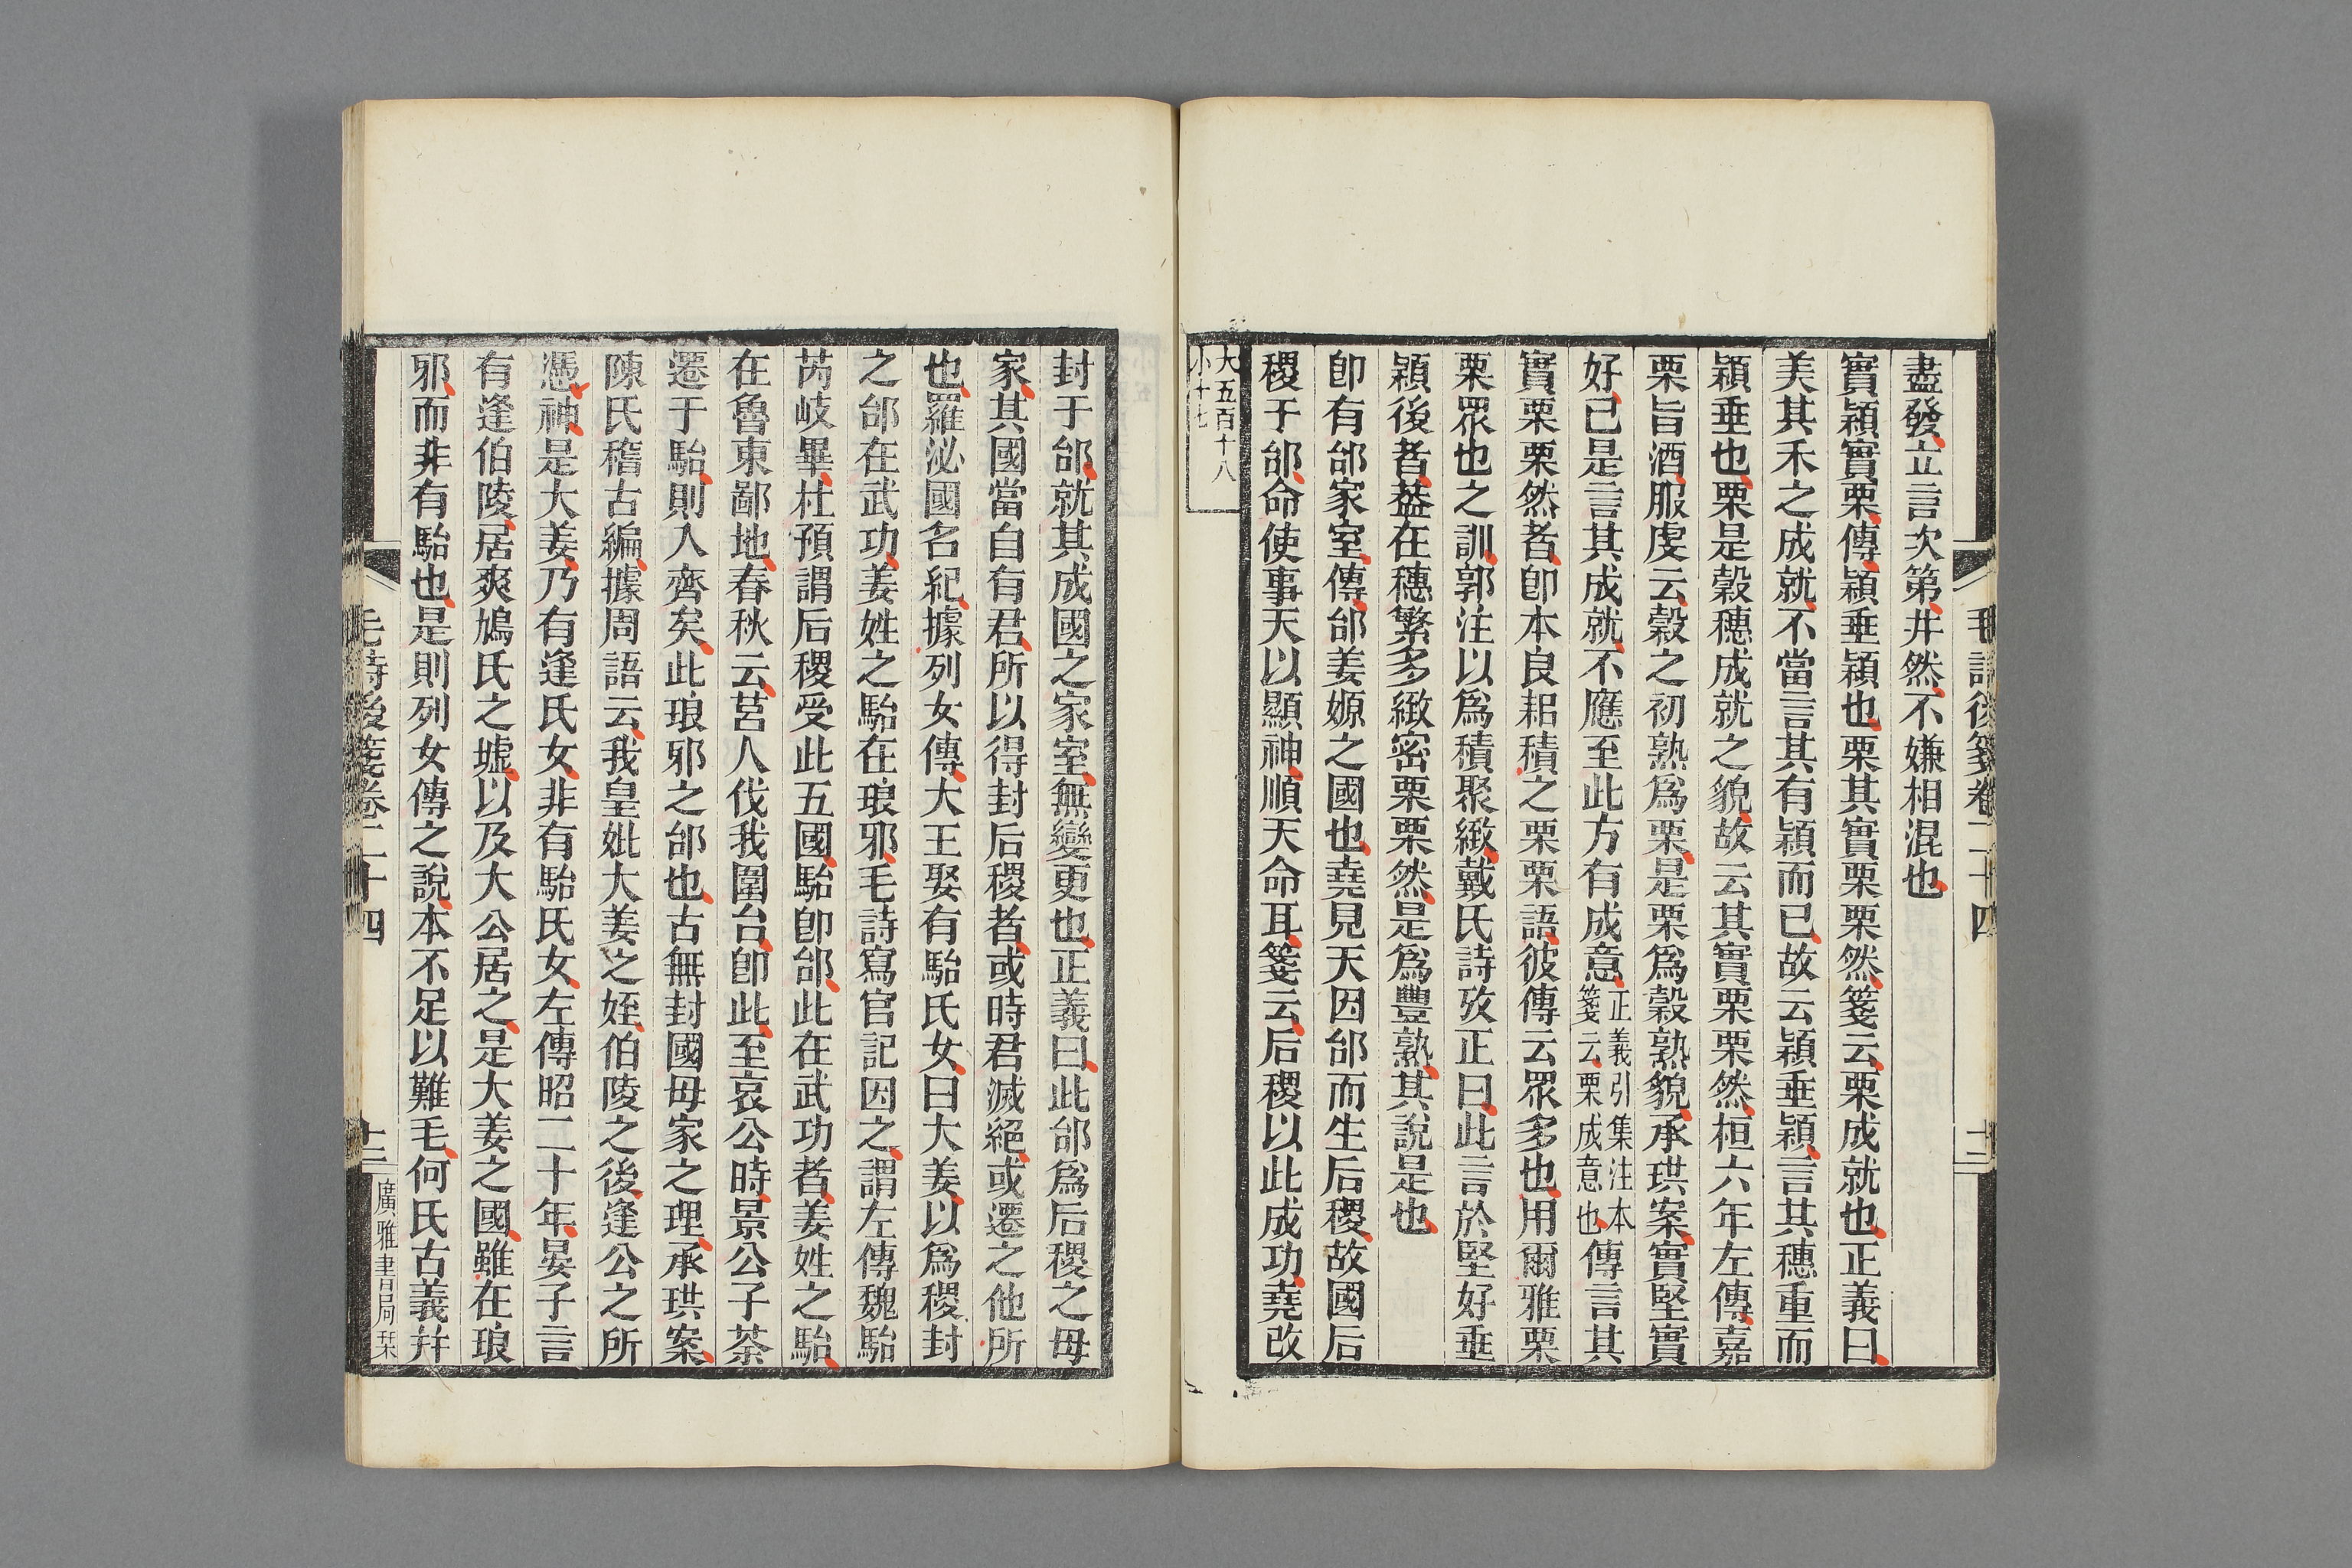 毛詩後箋卷二十四
十二
盡發立言次第井然不嫌相混也
實穎實栗傳穎垂穎也栗其實栗栗然箋云栗成就也正義曰
美其禾之成就不當言其有穎而已故云穎垂穎言其穗重而
穎垂也栗是穀穗成就之貌故云其實栗栗然桓六年左傳嘉
栗旨酒服虔云穀之初熟爲栗是栗爲穀熟貌承珙案實堅實
好已是言其成就不應至此方有成意正義引集注本箋云栗成意也傳言其
實栗栗然者卽本良耜積之栗栗語彼傳云眾多也用爾雅栗
栗眾也之訓郭注以爲積聚緻戴氏詩攷正曰此言於堅好垂
穎後者葢在穗繁多緻密栗栗然是爲豐熟其說是也
卽有邰家室傳邰姜嫄之國也堯見天因邰而生后稷故國后
稷于邰命使事天以顯神順天命耳箋云后稷以此成功堯改
大五百十八
小十七
封于邰就其成國之家室無變更也正義曰此邰爲后稷之母
家其國當自有君所以得封后稷者或時君滅絕或遷之他所
也羅泌國名紀據列女傳大王娶有駘氏女曰大姜以爲稷封
之邰在武功姜姓之駘在琅邪毛詩寫官記因之謂左傳魏駘
芮岐畢杜預謂后稷受此五國駘卽邰此在武功者姜姓之駘
在魯東鄙地春秋云莒人伐我圍台卽此至哀公時景公子荼
遷于駘則入齊矣此琅邪之邰也古無封國母家之理承珙案
陳氏稽古編據周語云我皇妣大姜之姪伯陵之後逢公之所
憑神是大姜乃有逢氏女非有駘氏女左傳昭二十年晏子言
有逢伯陵居爽鳩氏之墟以及大公居之是大姜之國雖在琅
邪而非有駘也是則列女傳之說本不足以難毛何氏古義幷
毛詩後箋卷二十四
十二
廣雅書局栞